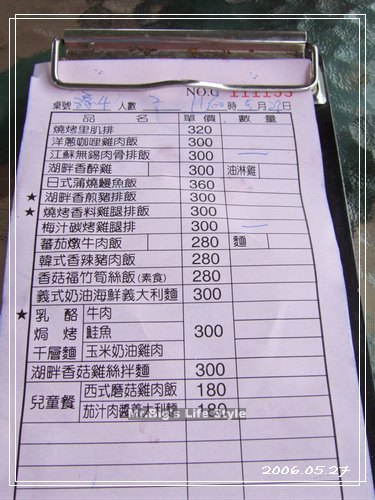 NO.G 111155
桌號 人數 時5月27日
品名 單價 數量
燒烤里肌排 320
洋蔥咖哩雞肉飯 300
江蘇無錫肉骨排飯 300
湖畔香醉雞 300 油淋雞
日式蒲燒鰻魚飯 360
★湖畔香煎豬排飯 300
★燒烤香料雞腿排飯 300
梅汁碳烤雞腿排飯 300
蕃茄燉牛肉飯 280 麵
韓式香辣豬肉飯 280
香菇福竹筍絲飯(素食) 280
義式奶油海鮮義大利麵 300
★乳酪 牛肉
焗烤 鮭魚 300
千層麵 玉米奶油雞肉
湖畔香菇雞絲拌麵 300
兒童餐 西式蘑菇雞肉飯 180
茄汁肉醬義大利麵 180
Mr.Big's Life Style
2006.05.27